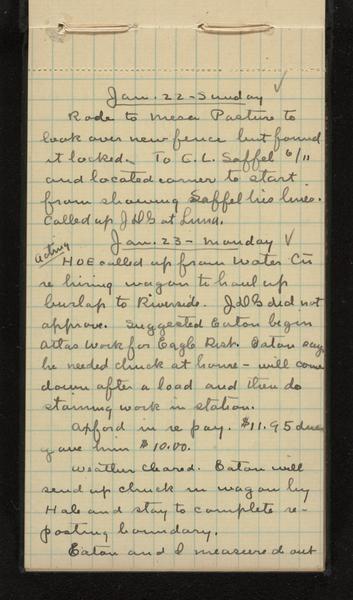 Jan. 22 - Sunday ✓
Rode to Mesa Pasture to
look over new fence but found
it locked. To C. L. Saffel 6/11
and located corner to start
from showing Saffel his lines.
Called up JDG at Luna.
Jan. 23 - Monday ✓
Acting
HOE called up from Water Cn
re hiring wagon to haul up
burlap to Riverside. JDG did not
approve. Suggested Eaton begin
atlas work for Eagle Dist. Eaton says
he needed chuck at home - will come
down after a load and then do
staining work in station.
Axford in re pay. $11.95 due
gave him $10.00.
Weather cleared. Eaton will
send up chuck in wagon by
Hale and stay to complete re-
posting boundary.
Eaton and I measured out